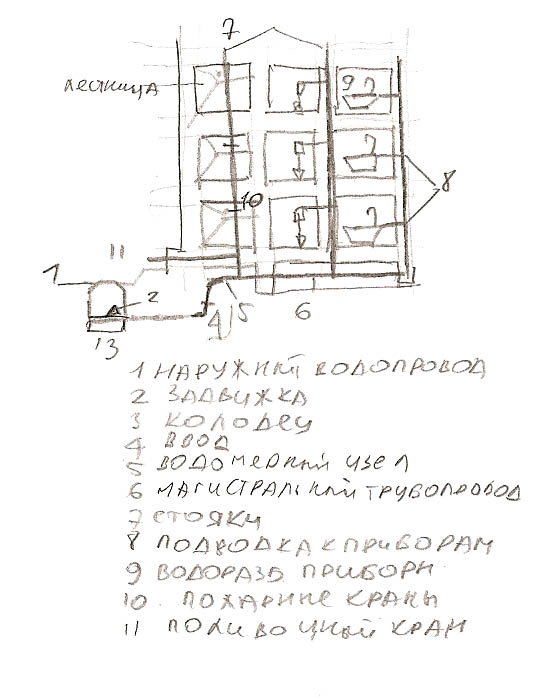 7
лестница
9
8
10
11
1
2
4
5
6
13
1 НАРУЖНЫЙ ВОДОПРОВОД
2 ЗАДВИЖКА
3 КОЛОДЕЦ
4 ВВОД
5 ВОДОМЕРНЫЙ УЗЕЛ
6 МАГИСТРАЛЬНЫЙ ТРУБОПРОВОД
7 СТОЯКИ
8 ПОДВОДКА К ПРИБОРАМ
9 ВОДОРАЗБ. ПРИБОРЫ
10 ПОЖАРНЫЕ КРАНЫ
11 ПОЛИВОЧНЫЙ КРАН